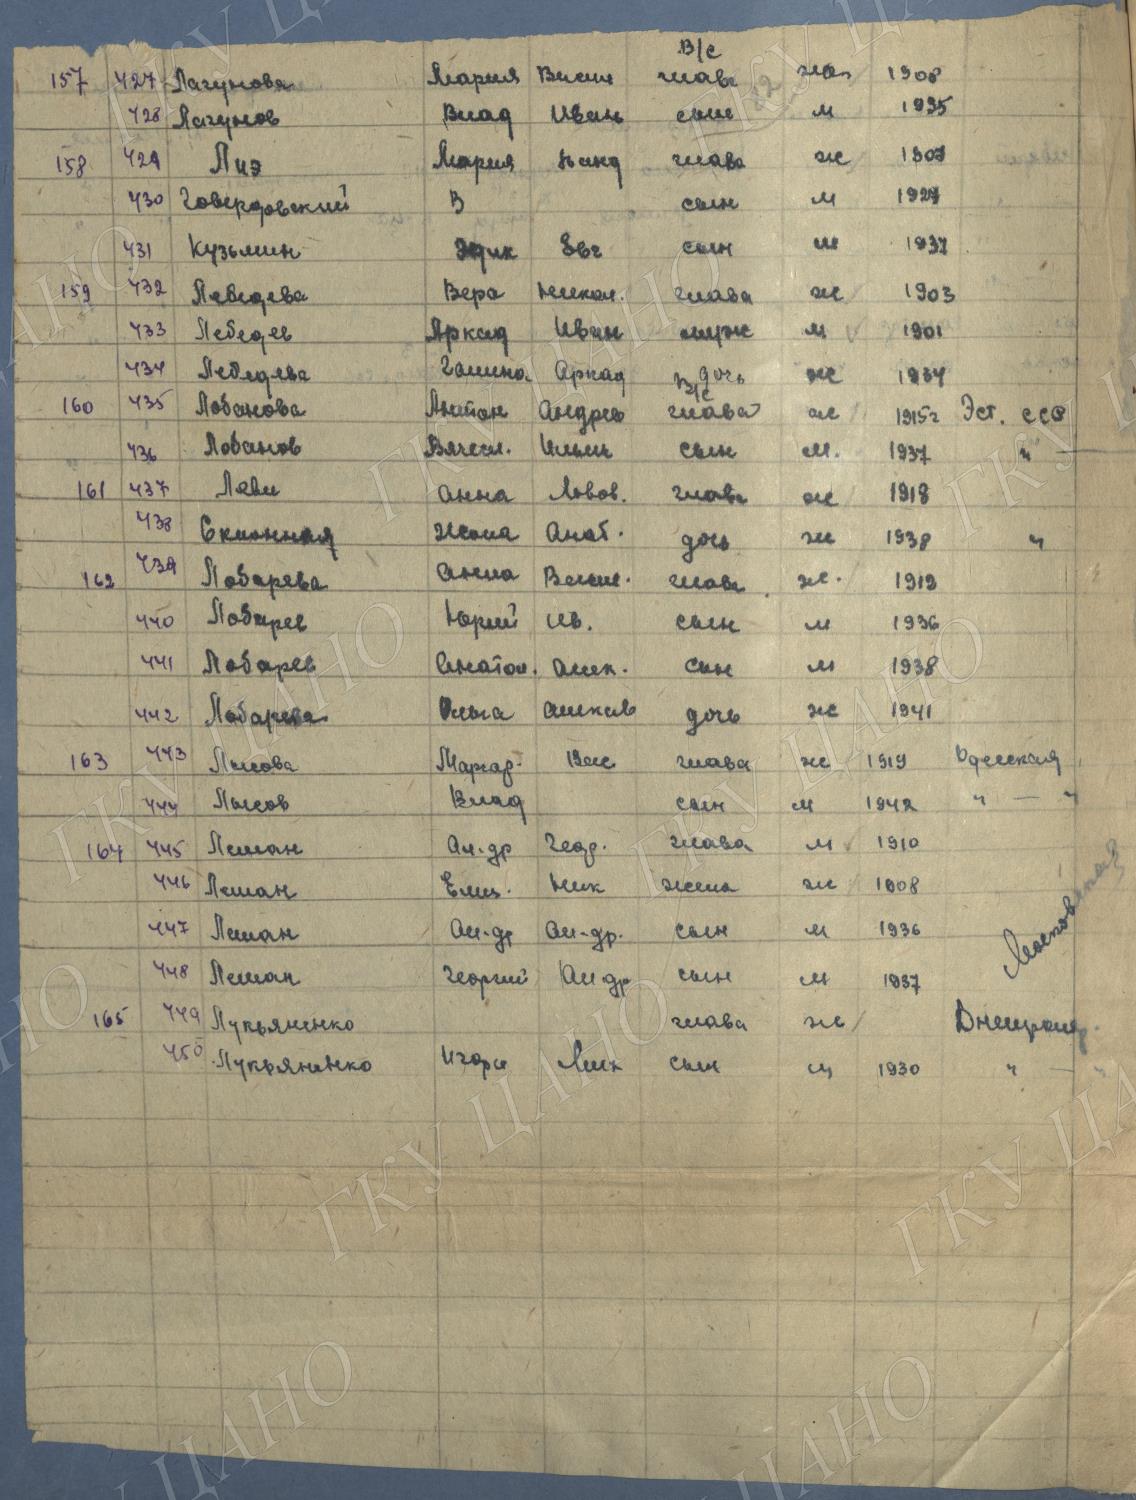 В/с
157 427 Лагунова Мария Васил глава ж 1908
428 Лагунов Влад Иван сын м 1935
158 429 Лиэ Мария глава ж 1907
430 Говердовский В сын м 1927
431 Кузьмин Эдик Евг сын м 1937
159 432 Лебедева Вера Никол. глава ж 1903
433 Лебедев Аркад Иван муж м 1901
434 Лебедева Галина Аркад дочь ж 1934
В/с
160 435 Лобанова Антон Андрев глава ж 1915г Эст. ССР
436 Лобанов Вячесл. Ильич сын м. 1937 "
161 437 Леви Анна Львов. глава ж 1918
438 Склонная Жанна Анат. дочь ж 1938 "
162 439 Лобарева Анна Васил. глава ж. 1919
440 Лобарев Юрий Ив. сын м 1936
441 Лобарев Анатол. Алек. сын м 1938
442 Лобарева Ольга Алексе дочь ж 1941
163 443 Лысова Маргар. Вас глава ж 1919 Одесская
444 Лысов Влад сын м 1942 " — "
164 445 Леман Ал-др Геор. глава м 1910
446 Леман Елиз. Ник жена ж 1908
447 Леман Ал-др Ал-др. сын м 1936
Московская
448 Леман Георгий Ал-др сын м 1937
165 449 Лукьяненко глава ж Днепропр.
450 Лукьяненко Игорь сын м 1930 " — "
ГКУ ЦАНО